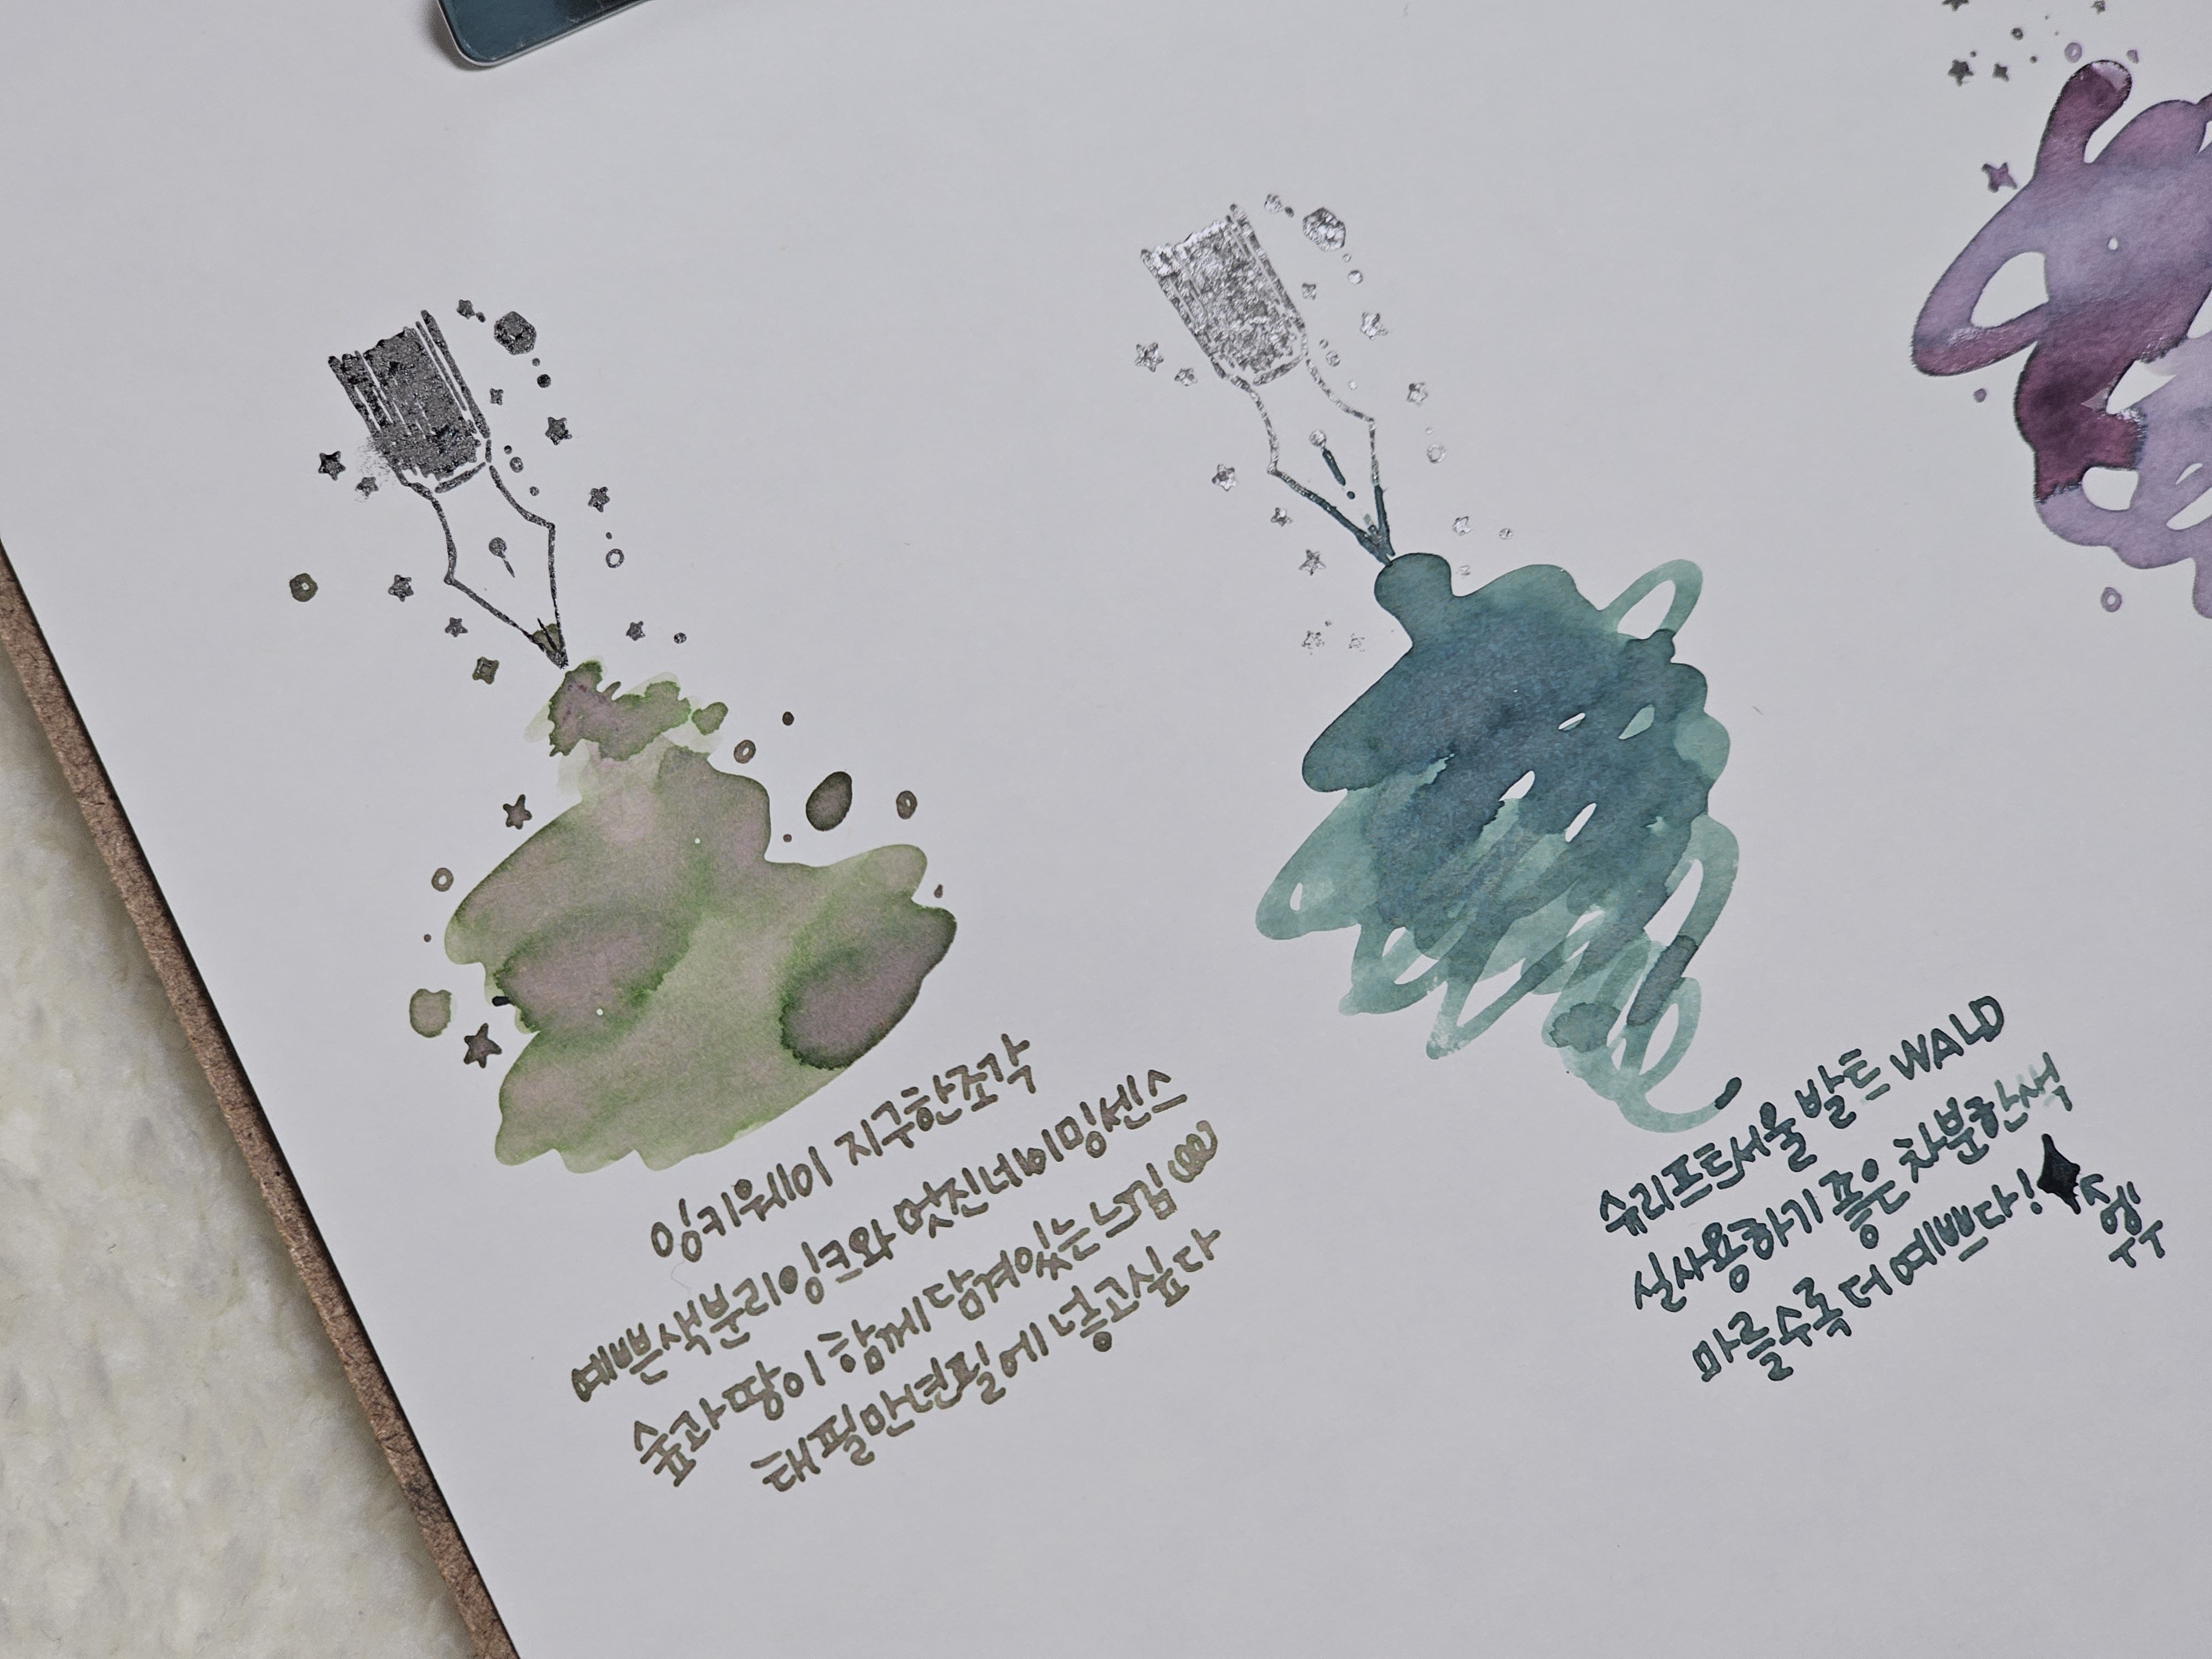 잉키웨이 지구한조각
예쁜색분리잉크와 멋진네이밍센스
숲과 땅이 함께 담겨있는 느낌
태필만년필에 넣고싶다
슈리프트서울 발트 WALD
실사용하기 좋은 차분한색
마를수록 더 예쁘다!